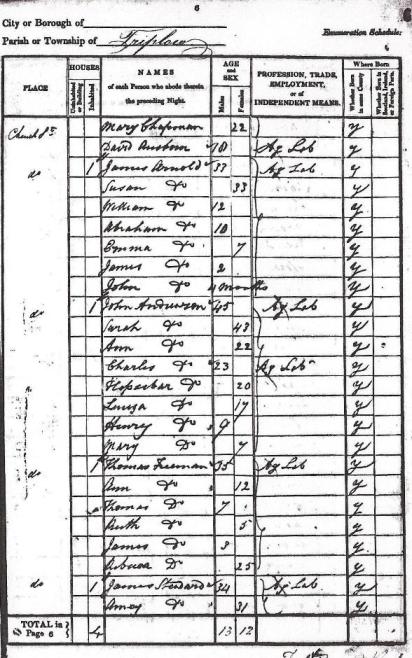 6
City or Borough of
Parish or Township of Triplow
Enumeration Schedule.
PLACE
HOUSES
Uninhabited or Building
Inhabited
NAMES
of each Person who abode therein
the preceding Night.
AGE and SEX
Males
Females
PROFESSION, TRADE,
EMPLOYMENT,
or of
INDEPENDENT MEANS.
Where Born
Whether Born in same County
Whether Born in Scotland, Ireland, or Foreign Parts.
Church St Mary Chapman 22 y
David 70 Ag Lab y
do 1 James Arnold 37 Ag Lab y
Susan Do 33 y
William Do 12 y
Abraham Do 10 y
Emma Do 7 y
James Do 2 y
John Do 4 months y
do 1 John Anderson 45 Ag Lab y
Sarah Do 43 y
Ann Do 22 y
Charles Do 23 Ag Lab y
Do 20 y
Louza Do 17 y
Henry Do 9 y
Mary Do 7 y
do 1 Thomas Freeman 35 Ag Lab y
Ann Do 12 y
Thomas Do 7 y
Ruth Do 5 y
James Do 3 y
Rebecca Do 25 y
do 1 James Steward 34 Ag Lab y
Amey Do 31 y
TOTAL in
Page 6 4 13 12